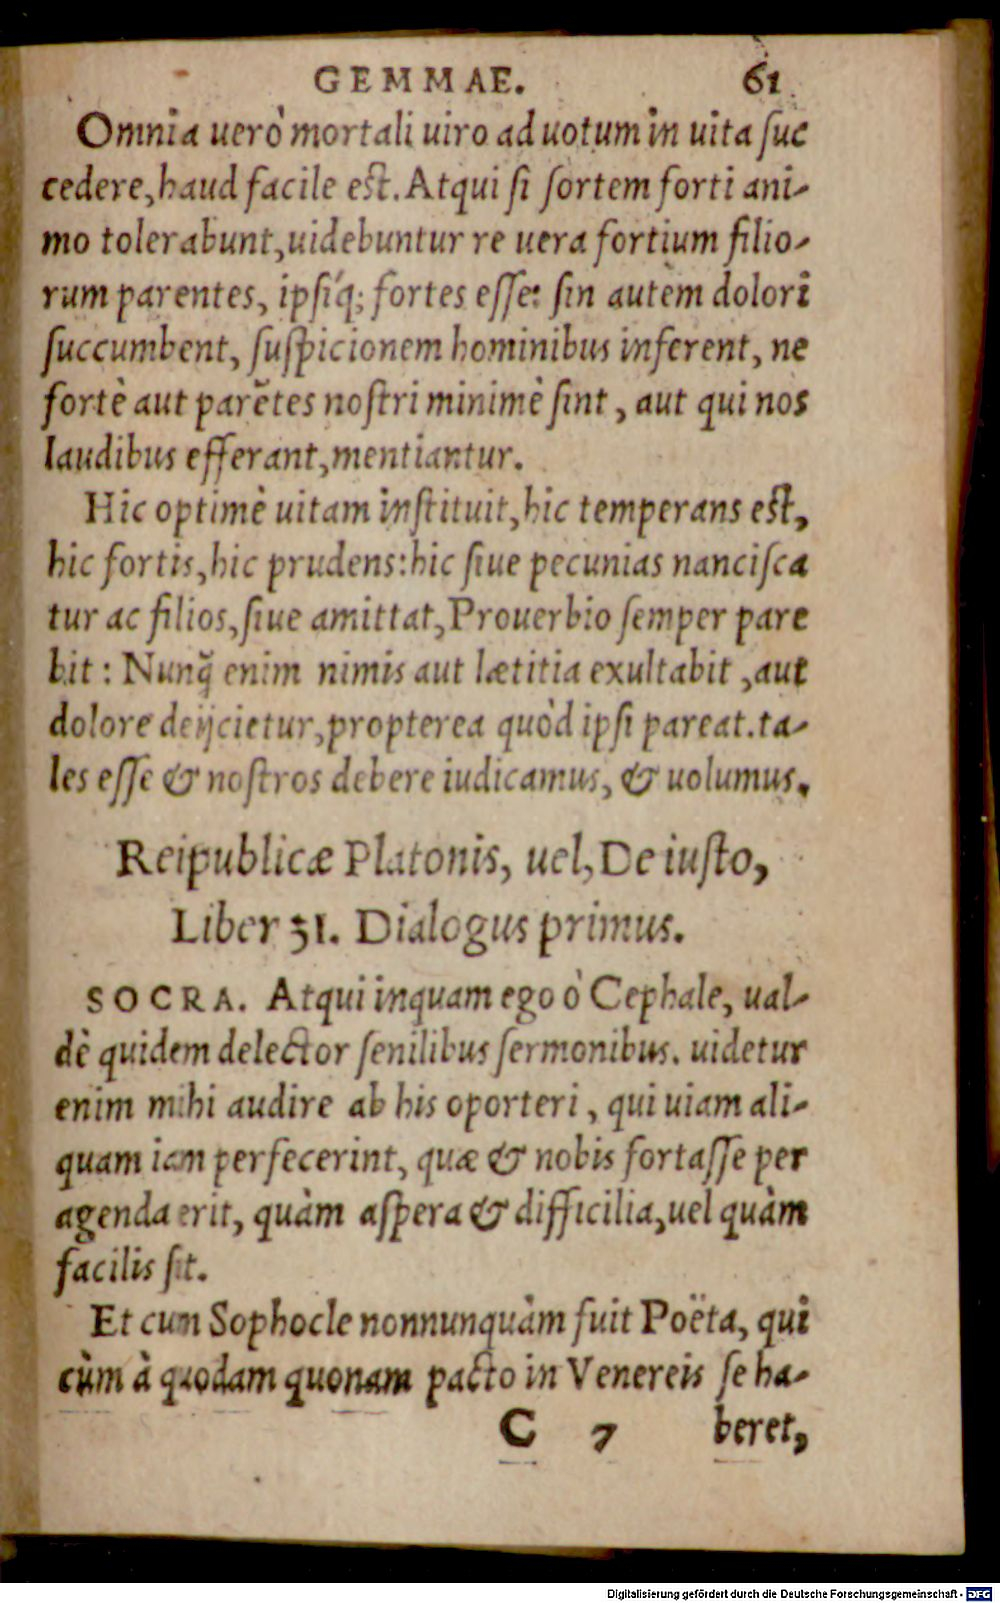 GEMMAE. 61
Omnia uerò mortali uiro ad uotum in uita ſuc
cedere, haud facile eſt. Atqui ſi ſortem forti ani-
mo tolerabunt, uidebuntur re uera fortium filio-
rum parentes, ipſiq́; fortes eſſe: ſin autem dolori
ſuccumbent, ſuſpicionem hominibus inferent, ne
fortè aut parẽtes noſtri minimè ſint, aut qui nos
laudibus efferant, mentiantur.
Hic optimè uitam inſtituit, hic temperans eſt,
hic fortis, hic prudens: hic ſiue pecunias nanciſca
tur ac filios, ſiue amittat, Prouerbio ſemper pare
bit: Nunq̃ enim nimis aut lætitia exultabit, aut
dolore deijcietur, propterea quòd ipſi pareat. ta-
les eſſe & noſtros debere iudicamus, & uolumus.
Reipublicæ Platonis, uel, De iuſto,
Liber 31. Dialogus primus.
SOCRA. Atqui inquam ego ò Cephale, ual-
dè quidem delector ſenilibus ſermonibus. uidetur
enim mihi audire ab his oporteri, qui uiam ali-
quam iam perfecerint, quæ & nobis fortaſſe per
agenda erit, quàm aſpera & difficilia, uel quàm
facilis ſit.
Et cum Sophocle nonnunquàm fuit Poëta, qui
cùm à quodam quonam pacto in Venereis ſe ha-
C 7 beret,
Digitalisierung gefördert durch die Deutsche Forschungsgemeinschaft - DFG